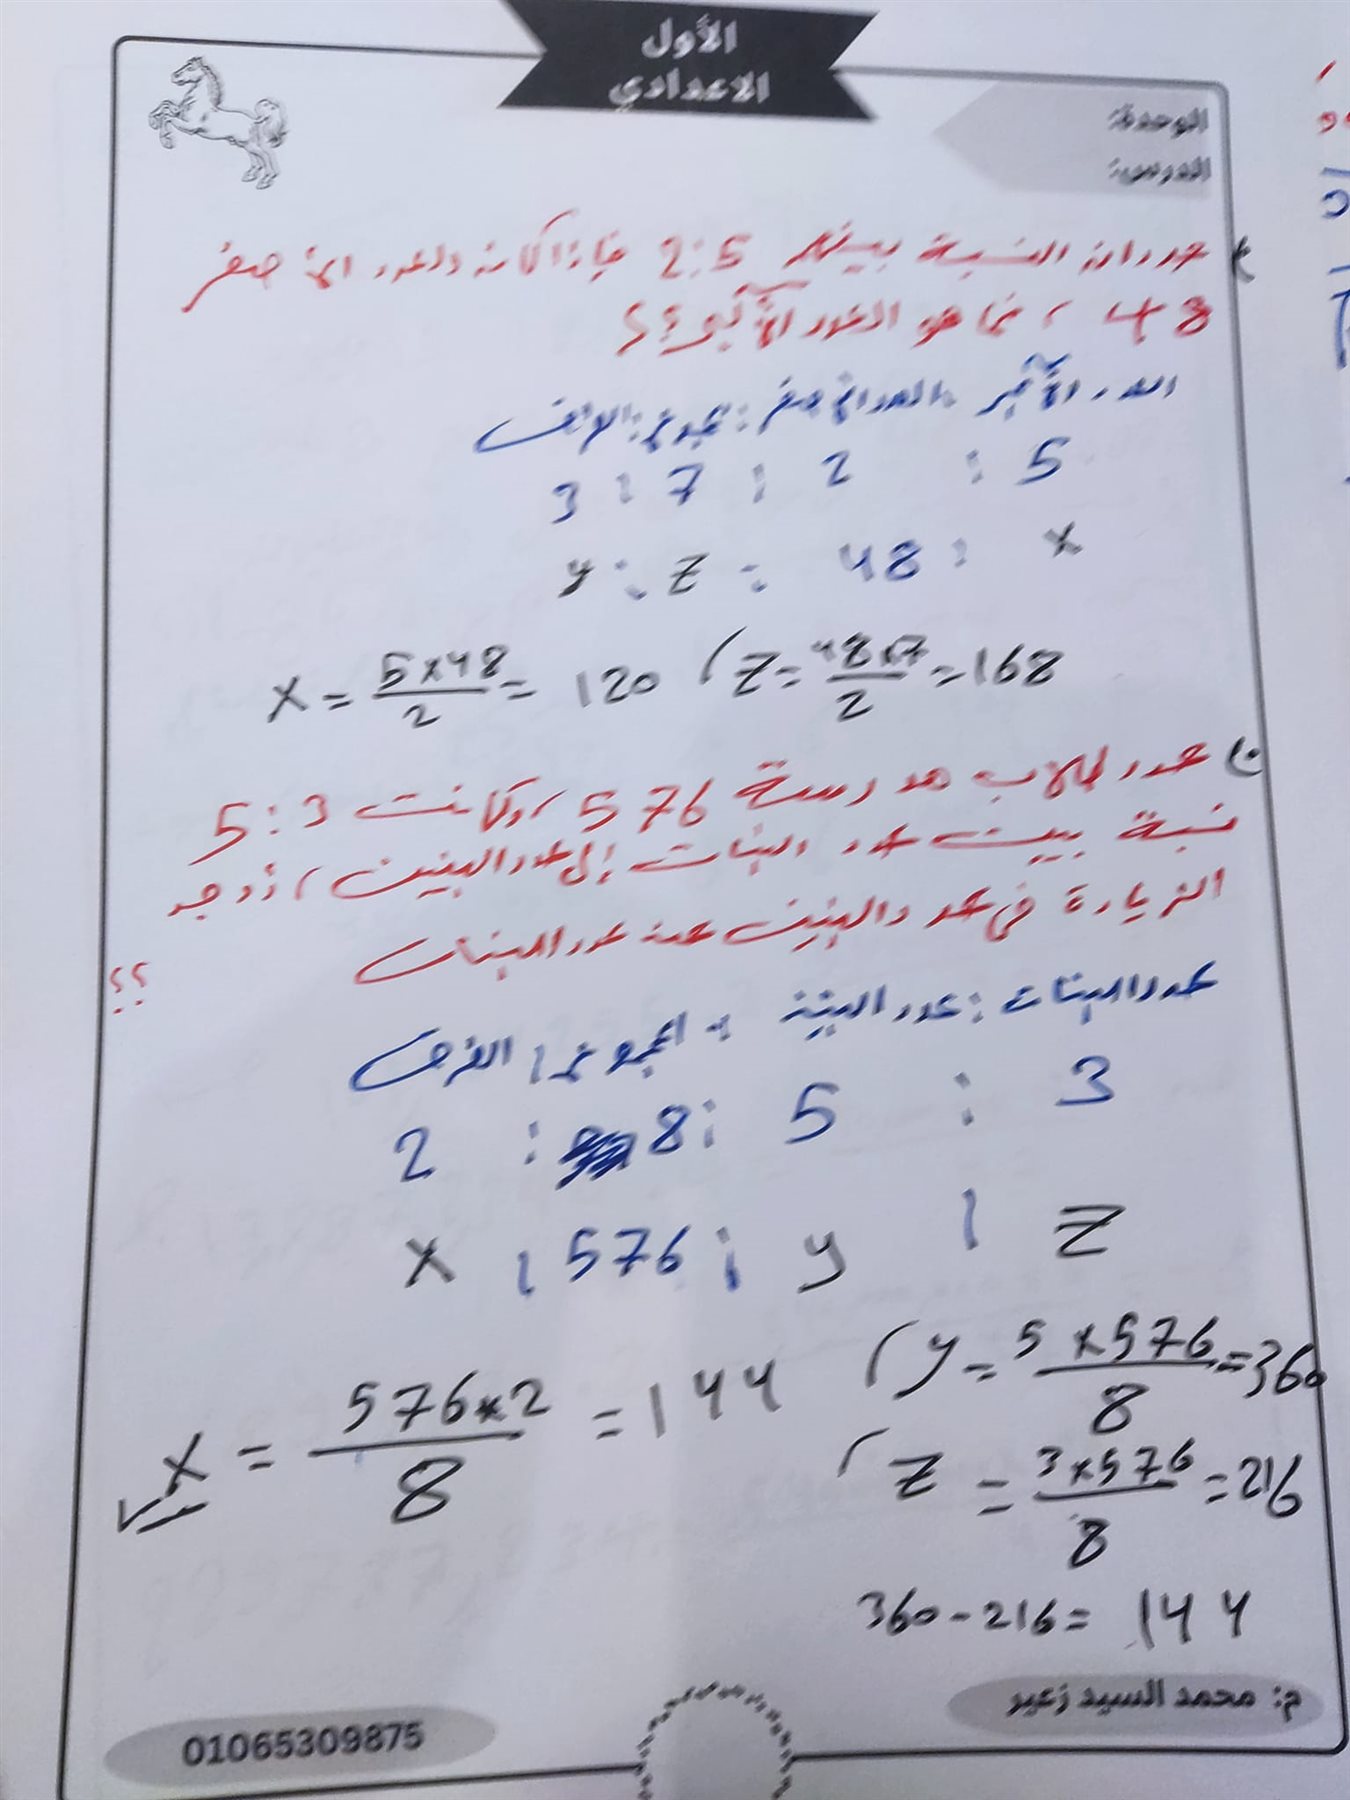 الأول
الاعدادي
الوحدة:
الدرس:
عددان النسبة بينهما 2:5 فإذا كان العدد الأصغر
48 ، فما هو العدد الأكبر؟؟
العدد الأكبر : العدد الأصغر : المجموع : الفرق
5 : 2 : 7 : 3
x : 48 : z : y
x = 5×48/2 = 120 ، z = 48×7/2 = 168
عدد طلاب مدرسة 576 ، وكانت 5:3
نسبة بين عدد البنات إلى عدد البنين ، أوجد
الزيادة في عدد البنين عن عدد البنات
؟؟
عدد البنات : عدد البنين : المجموع : الفرق
3 : 5 : 8 : 2
z : y : 576 : x
x = 576×2/8 = 144 ، y = 5×576/8 = 360
، z = 3×576/8 = 216
360-216= 144
م: محمد السيد زعير
01065309875